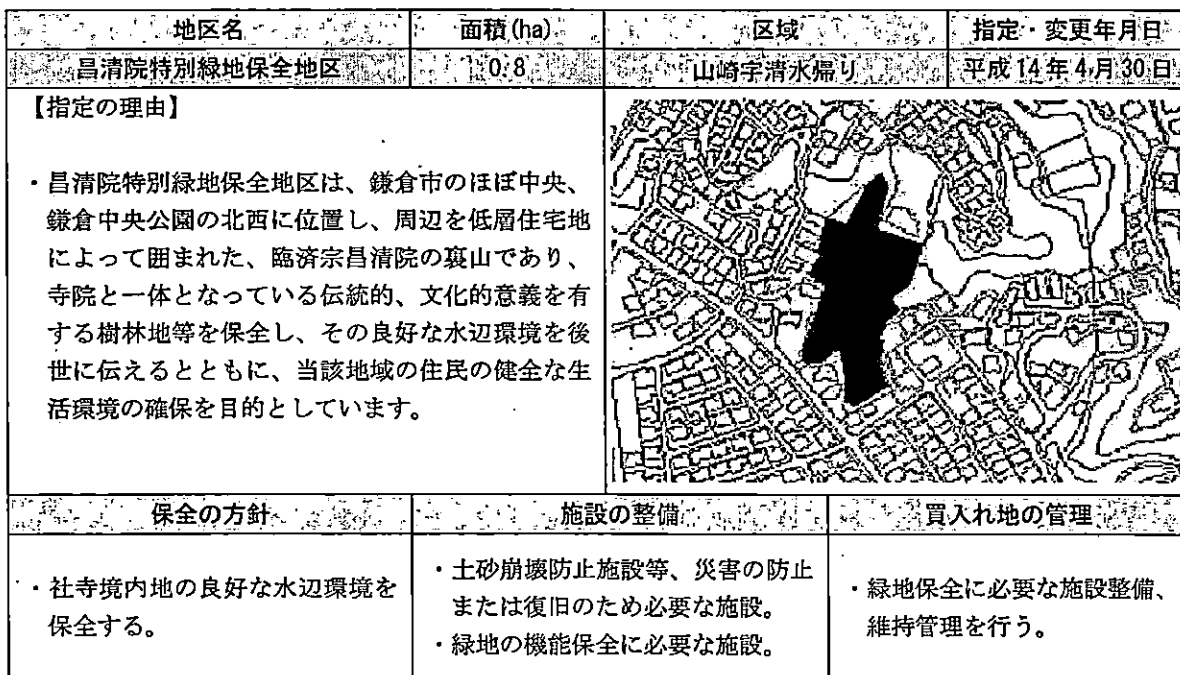 地区名 面積(ha) 区域 指定・変更年月日
昌清院特別緑地保全地区 0.8 山崎字清水帰り 平成14年4月30日
【指定の理由】
・昌清院特別緑地保全地区は、鎌倉市のほぼ中央、
鎌倉中央公園の北西に位置し、周辺を低層住宅地
によって囲まれた、臨済宗昌清院の裏山であり、
寺院と一体となっている伝統的、文化的意義を有
する樹林地等を保全し、その良好な水辺環境を後
世に伝えるとともに、当該地域の住民の健全な生
活環境の確保を目的としています。
保全の方針 施設の整備 買入れ地の管理
・社寺境内地の良好な水辺環境を
保全する。
・土砂崩壊防止施設等、災害の防止
または復旧のため必要な施設。
・緑地の機能保全に必要な施設。
・緑地保全に必要な施設整備、
維持管理を行う。